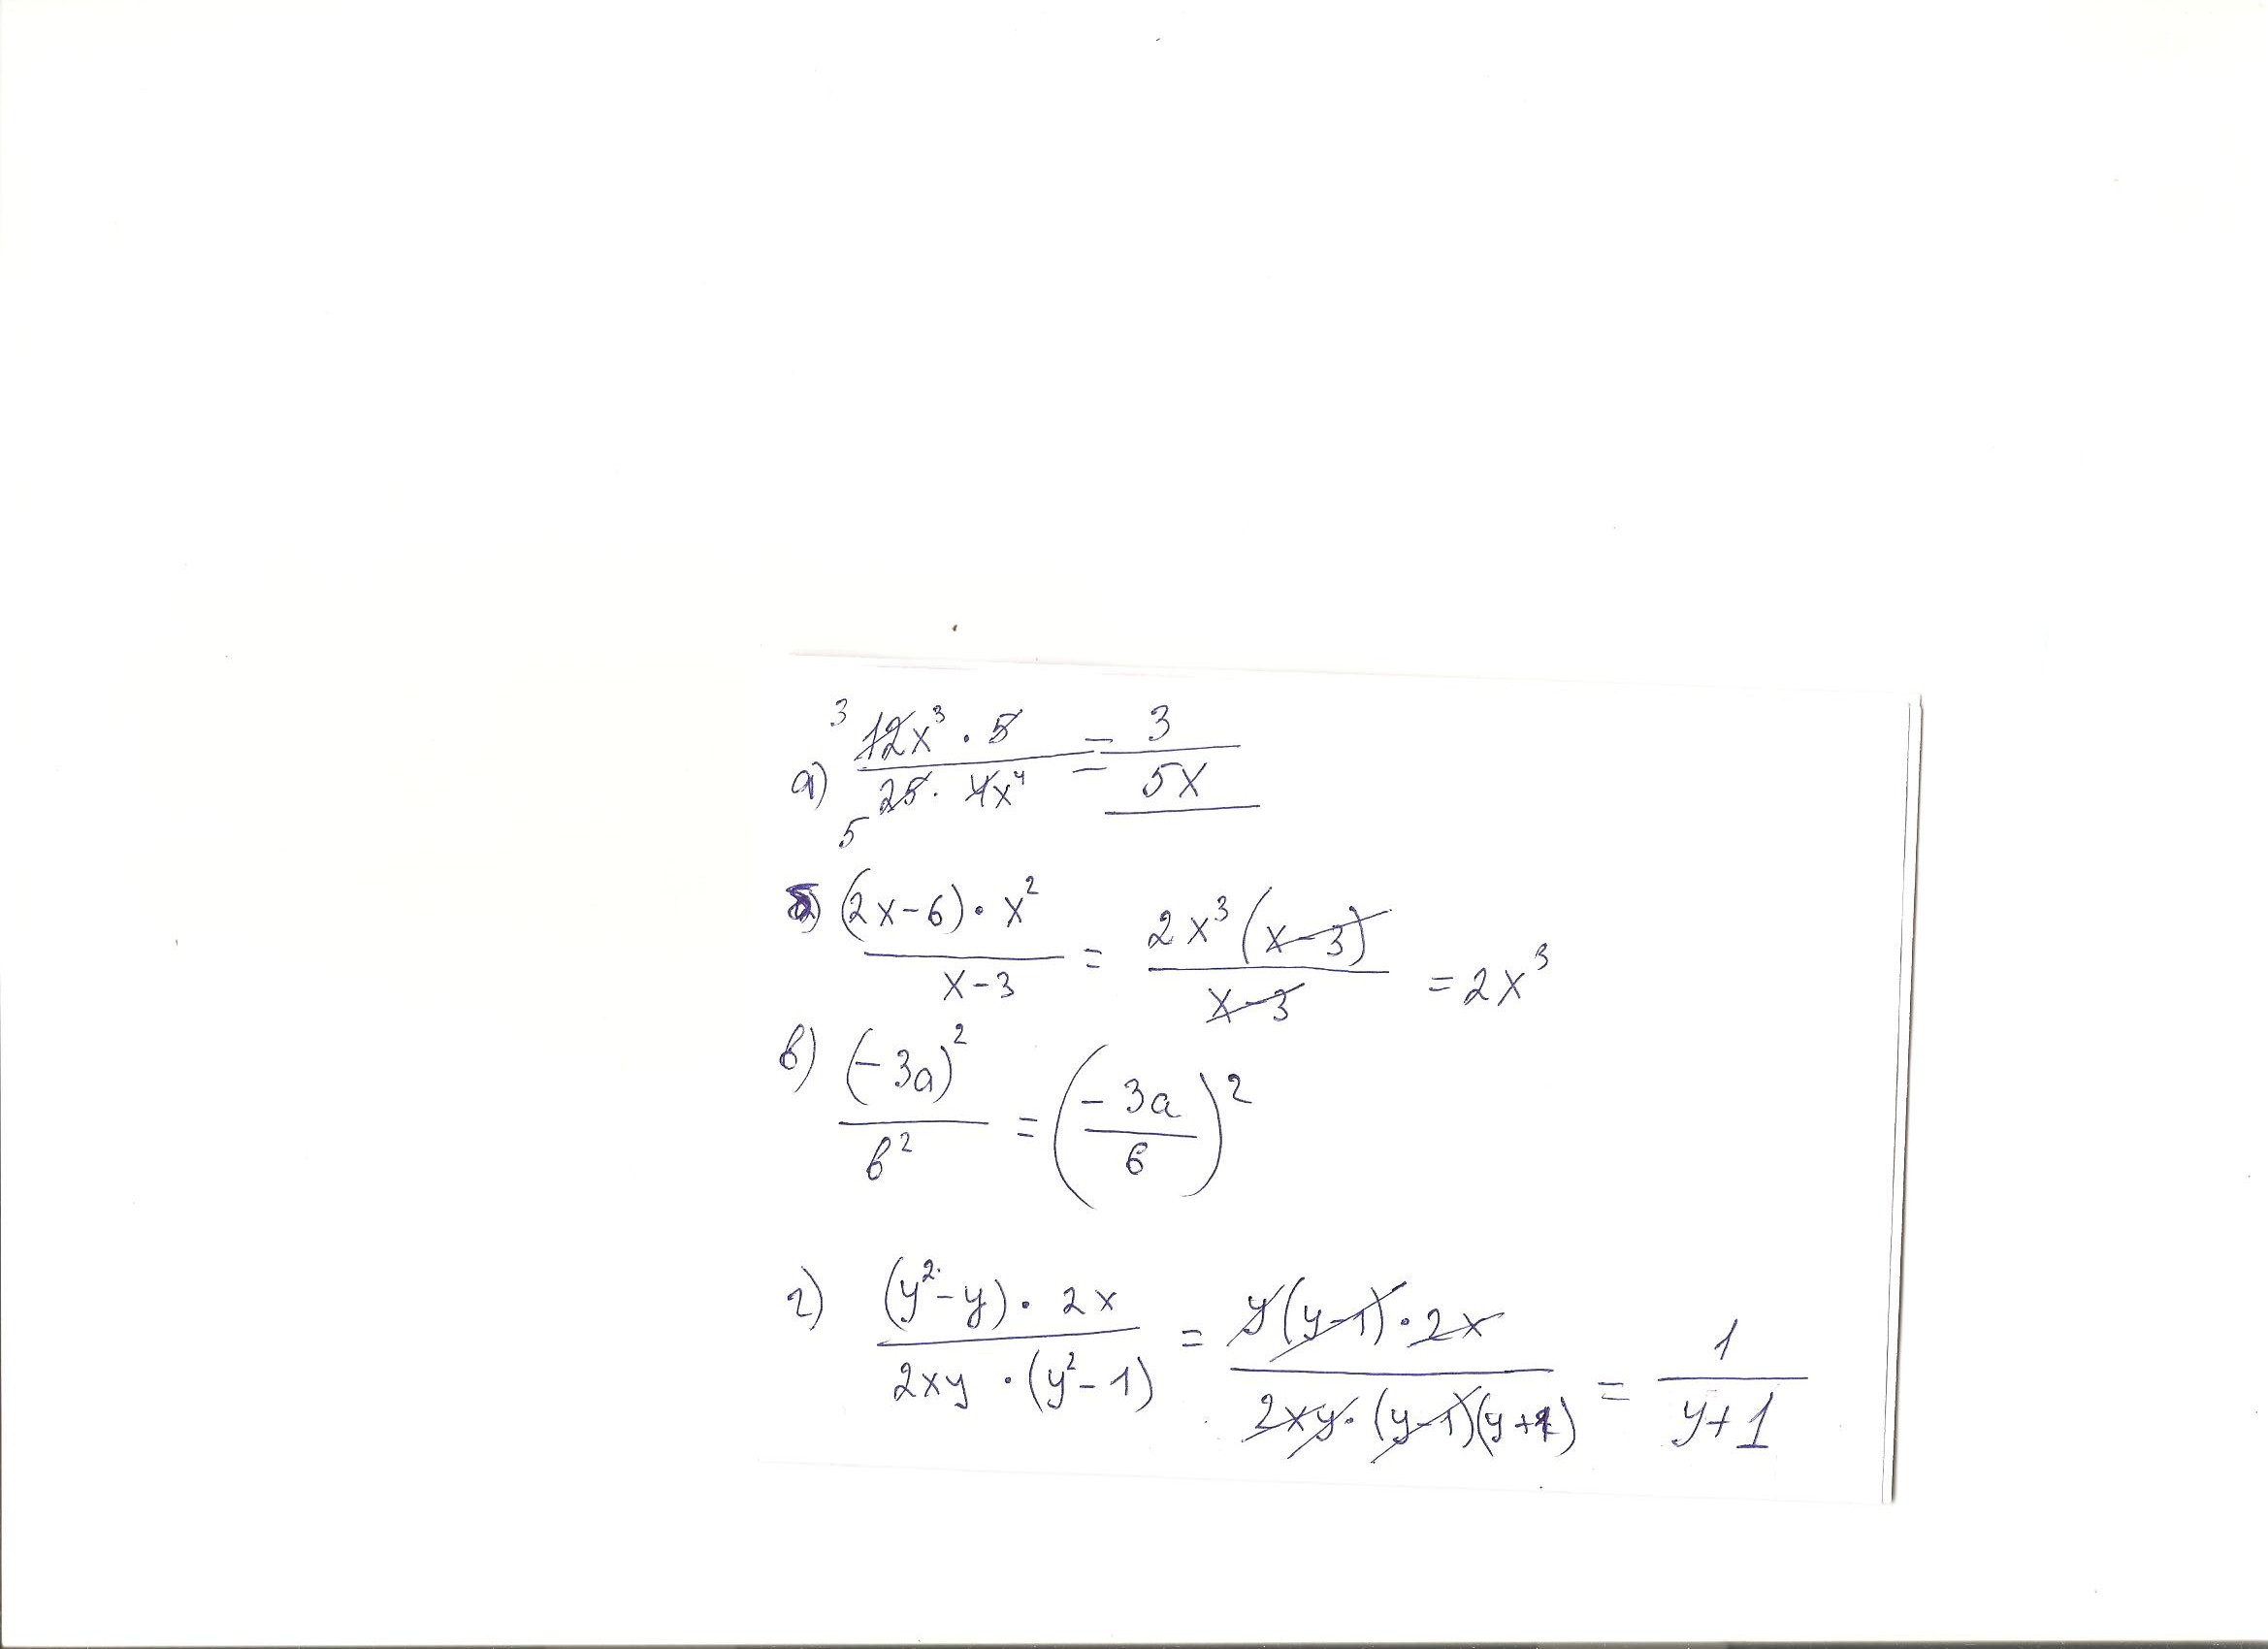 а) 12x³ · 5 / 25 · 4x⁴ = 3 / 5x
3
5
б) (2x-6) · x² / x-3 = 2x³(x-3) / x-3 = 2x³
в) (-3a)² / в² = (-3a / б)²
г) (y²-y) · 2x / 2xy · (y²-1) = y(y-1) · 2x / 2xy · (y-1)(y+1) = 1 / y+1